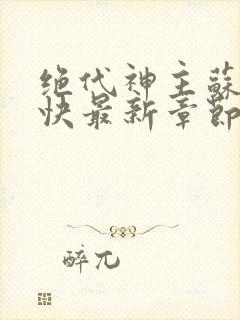 绝代神主蘇
快最新章節
醉兀